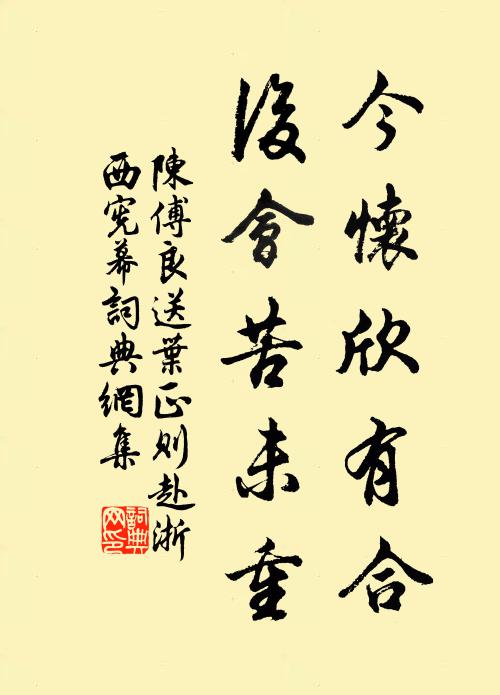 今懷欣有合
後會苦未重
陳傅良送葉正則赴浙
西憲幕詞典網集
詞典网印